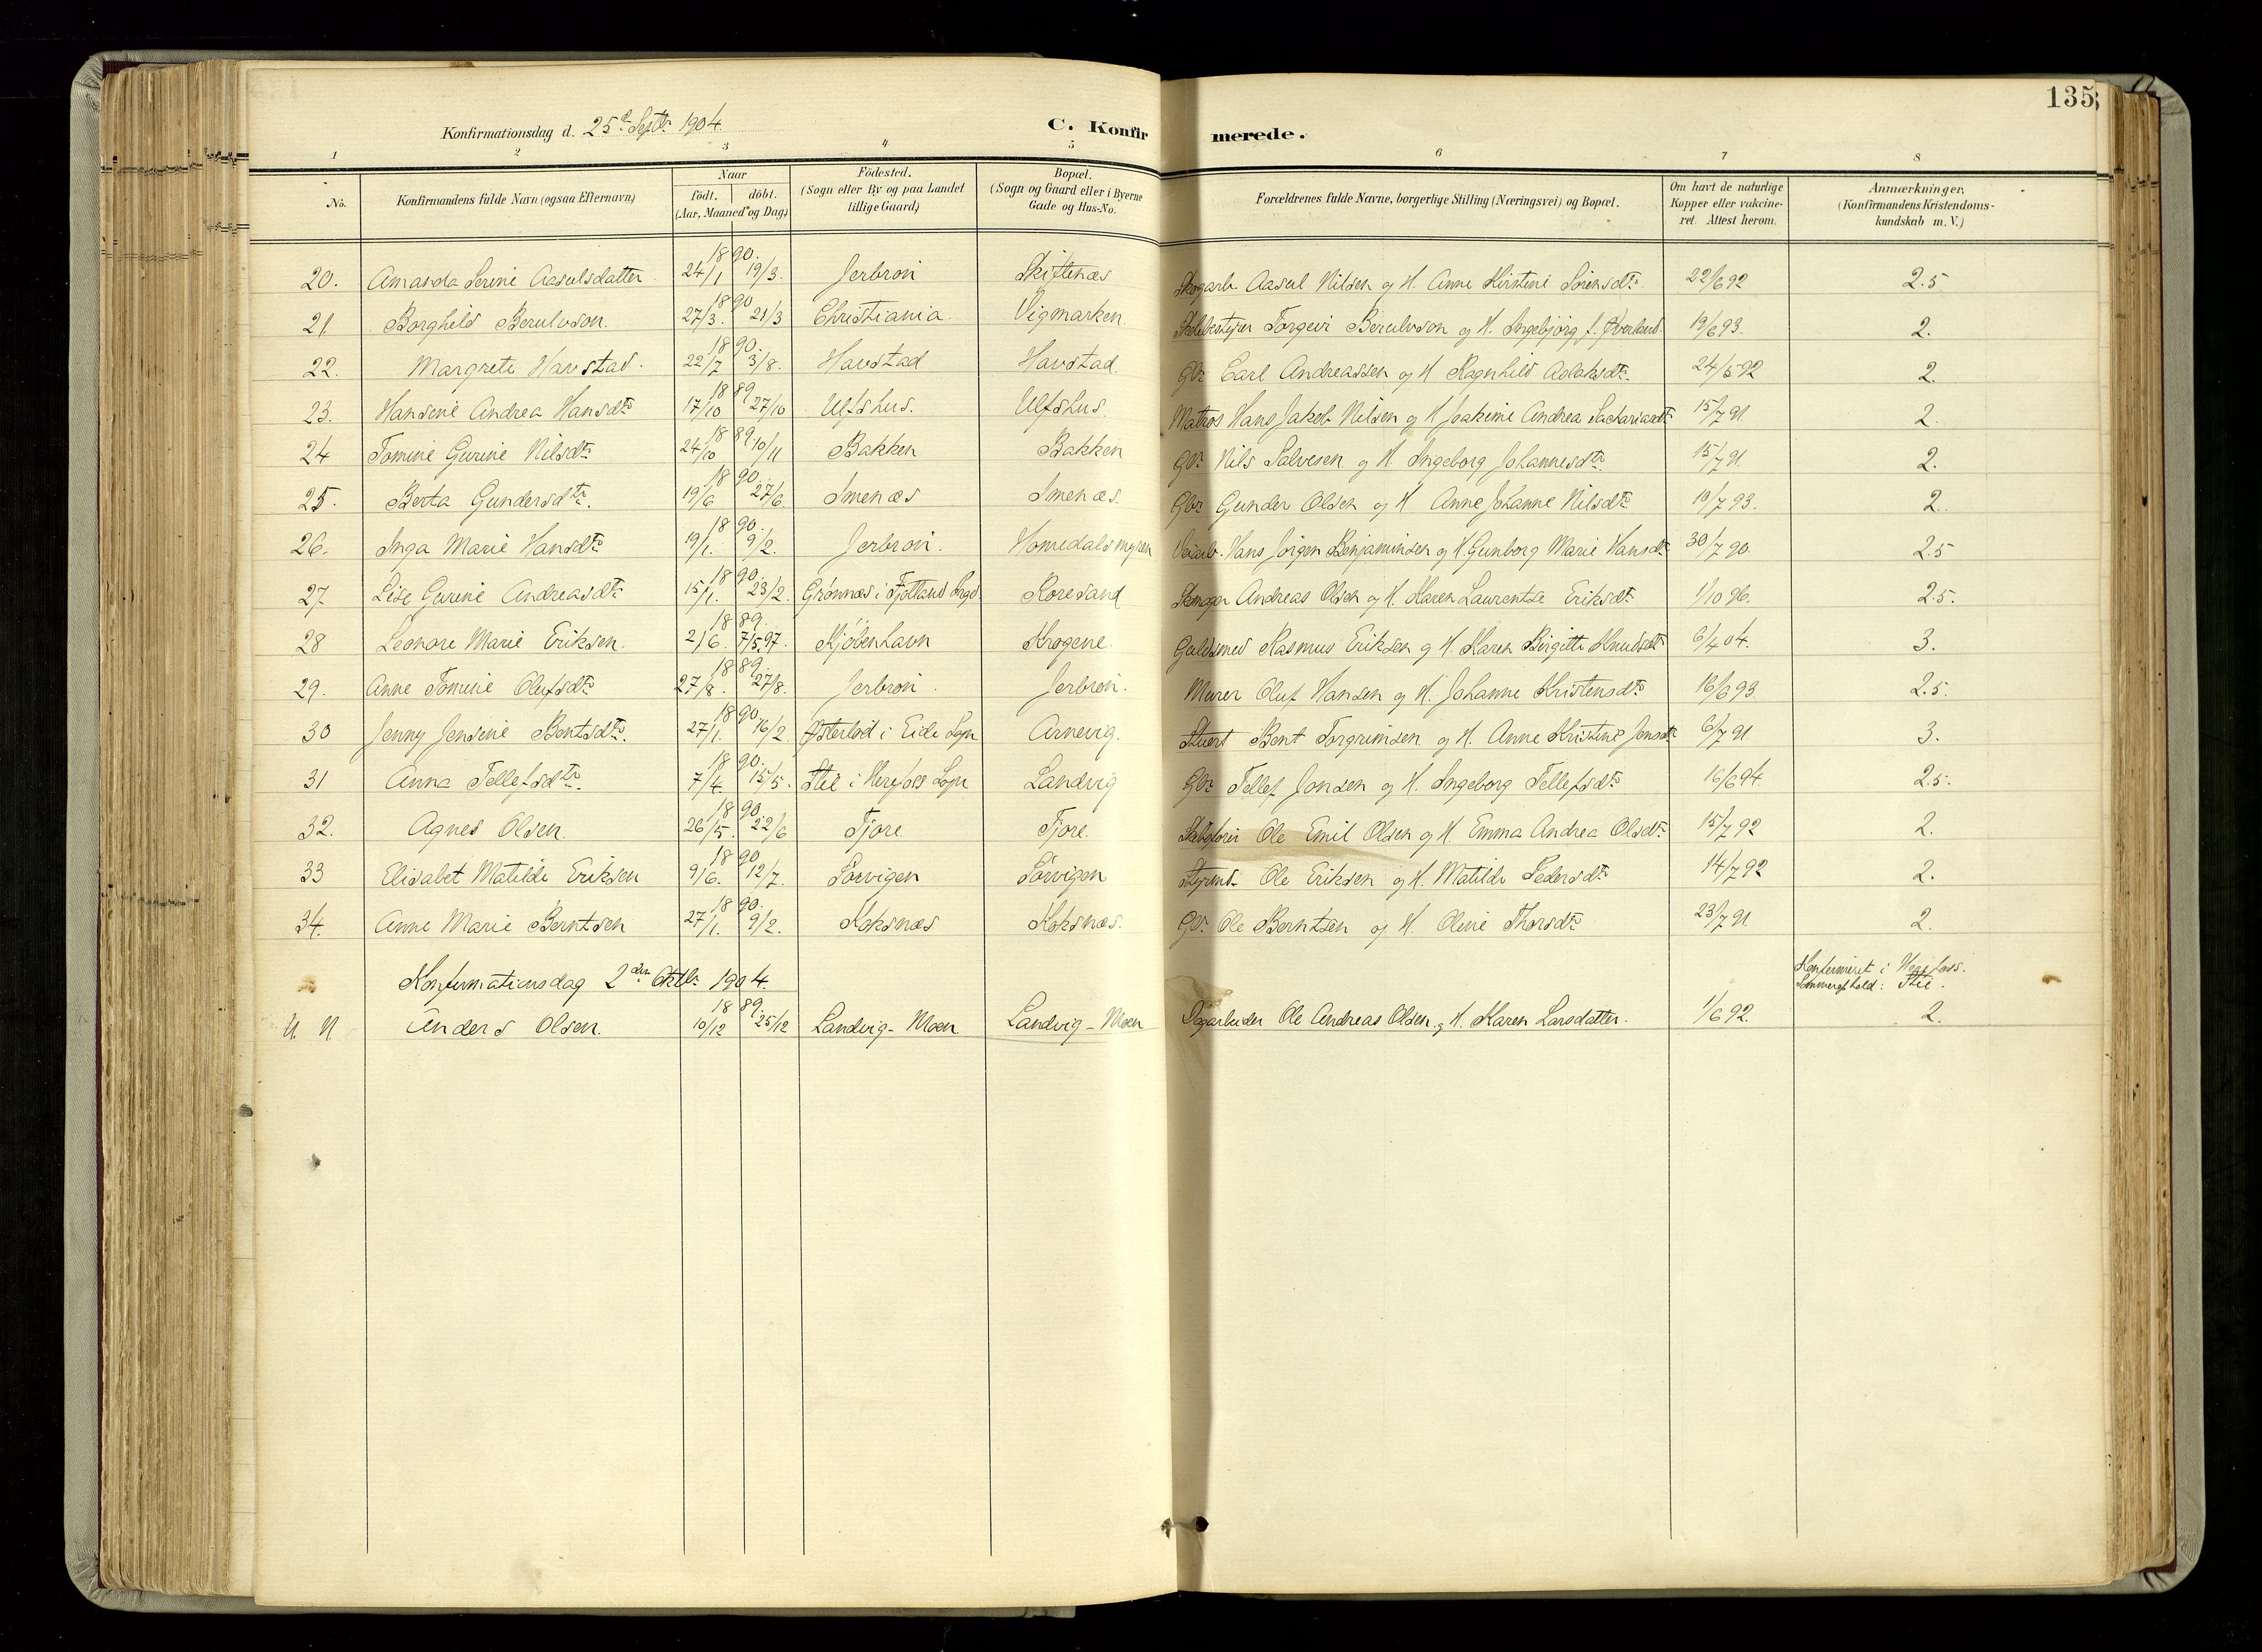 135
Konfirmationsdag d. 25de Septbr 1904. C. Konfirmerede.
1 2 3 4 5 6 7 8
No. Konfirmandens fulde Navn (ogsaa Efternavn) Naar födt. döbt. (Aar, Maaned og Dag) Födested. (Sogn eller By og paa Landet tillige Gaard) Bopæl. (Sogn og Gaard eller i Byerne Gade og Hus-No. Forældrenes fulde Navne, borgerlige Stilling (Næringsvei) og Bopæl. Om havt de naturlige Kopper eller vakcineret. Attest herom. Anmærkninger. (Konfirmandens Kristendomskundskab m. V.)
20. Amanda Serine Aasulsdatter 1890. 24/1 19/3. Jerbron Skiftenæs Skogarb. Aasul Nilsen og H. Anne Kirstine Sörensdtr 22/6 92 2.5
21. Borghild Berulvson. 1890 27/3. 21/3 Christiania Vigmarken Torgeir Berulvson og H. Ingebjörg f. Øverland. 19/6 93. 2.
22. Margrete Havstad. 1890. 22/7 3/8. Havstad Havstad. Gbr. Carl Andreassen og H Ragnhild Aslaksdtr. 24/5 92 2.
23. Hansine Andrea Hansdtr 1889 17/10 27/10 Ulfshus. Ulfshus Matros Hans Jakob Nilsen og H Joakime Andrea Sachariasdtr 15/7 91. 2.
24 Tomine Gurine Nilsdtr 1889. 24/10 10/11 Bakken Bakken Gbr. Nils Salvesen og H. Ingeborg Johannesdtr. 15/7 91. 2.
25. Berta Gundersdtr. 1890. 19/6 27/6. Imenæs Imenæs. Gbr. Gunder Olsen og H Anne Johanne Nilsdtr 19/7 93. 2.
26. Inga Marie Hansdtr 1890. 19/1. 9/2. Jerbron. Homedalsmyren Veiarb. Hans Jörgen Benjaminsen og H. Gunborg Marie Hansdtr 30/7 90. 2.5
27 Lise Gurine Andreasdtr 1890. 15/1. 23/2. Grönnæs i Fjotland Sogn Roresand Skomager Andreas Olsen og H. Karen Laurentse Eriksdtr 1/10 96. 2.5.
28 Leonore Marie Eriksen. 1889. 2/6. 7/5.97. Kjöbenhavn Krogene Guldsmed Rasmus Eriksen og H. Karen Birgitte Knudsdtr 6/4 04. 3.
29. Anne Tomine Olufsdtr 1889. 27/8. 27/8. Jerbron. Jerbron. Murer Oluf Hansen og H. Johanne Kristensdtr 16/6 93. 2.5.
30 Jenny Jensine Bentsdtr. 1890 27/1. 16/2. Østerlod i Eide Sogn Arnevig. Stuert Bent Torgrimsen og H. Anne Kristine Jonsdtr 6/7 91 3.
31 Anna Tellefsdtr. 1890. 7/4. 15/5. Stie i Herefoss Sogn Landvig Gbr Tellef Jonsen og H. Ingeborg Tellefsdtr 16/6 94. 2.5.
32. Agnes Olsen. 1890. 26/5. 22/6 Fjore Fjore Skibsförer Ole Emil Olsen og H. Emma Andrea Olsdtr 15/7 92 2.
33 Elisabet Matilde Eriksen 1890 9/6. 12/7. Sörvigen Sörvigen Styrmd. Ole Eriksen og H. Matilde Pedersdtr 14/7 92 2.
34. Anne Marie Berntsen 1890. 27/1. 9/2. Roksnæs Roksnæs. Gbr. Ole Berntsen og H Oline Thorsdtr 23/7 91. 2.
Konfirmationsdag 2den Oktbr 1904. Konfirmeret i Herefoss.
Sommerophold: Stie.
U. N. Anders Olsen. 1889. 10/12 25/12 Landvig-Moen Landvig-Moen Dagarbeider Ole Andreas Olsen og H. Karen Larsdatter. 1/6 92. 2.